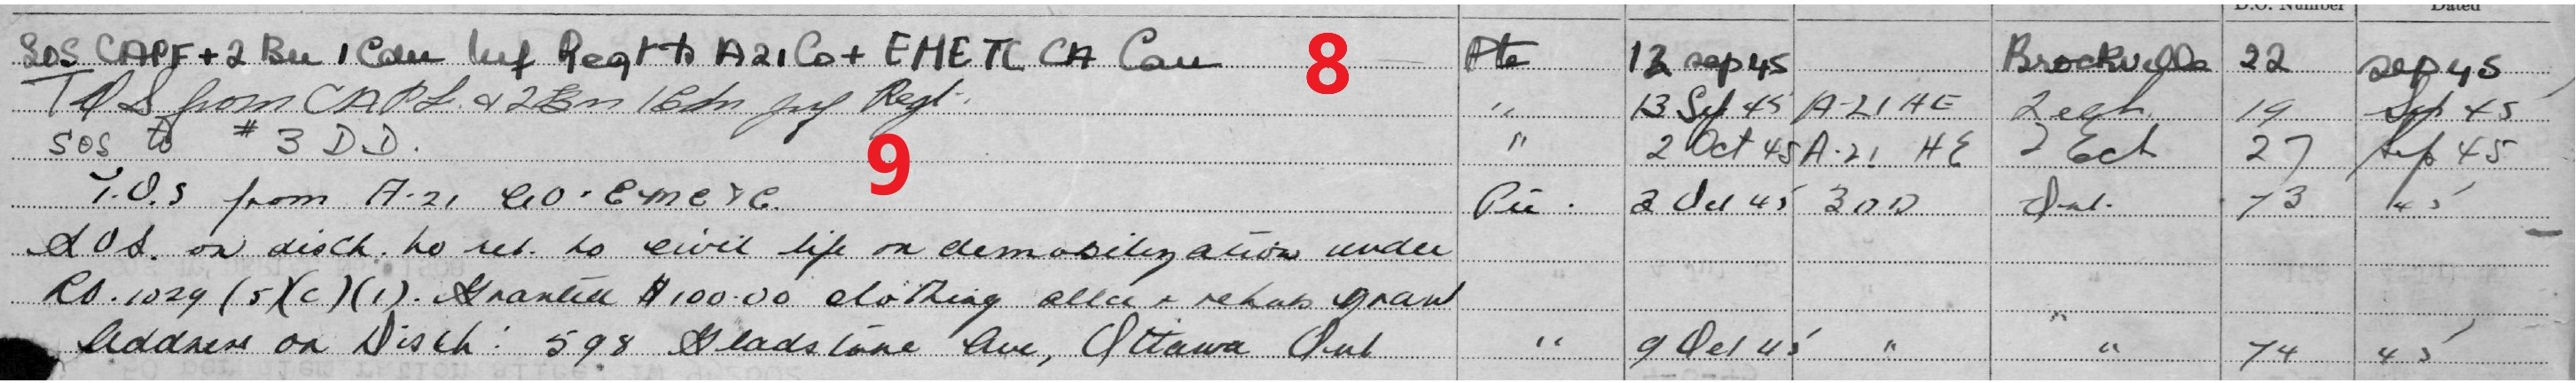 D.O. Number Dated
SOS CAPF + 2 Bn 1 Cdn Inf Regt to A21 Co + EMETC CA Can 8 Pte 12 Sep 45 Brockville 22 Sep 45
TOS from CAPF & 2 Bn 1 Cdn Inf Regt. " 13 Sep 45 A-21 HE 2 ech 19 Sep 45
SOS to #3 D.D. 9 " 2 Oct 45 A-21 HE 2 Ech 27 Sep 45
T.O.S from A-21 CO. EMETC. Pte. 2 Oct 45 3 DD Ont. 73 45
SOS. on disch. to ret. to civil life on demobilization under
RO. 1029 (5)(C)(1). Granted $100.00 clothing allce + rehab grant "
Address on Disch: 598 Gladstone Ave, Ottawa Ont " 9 Oct 45 " " 74 45